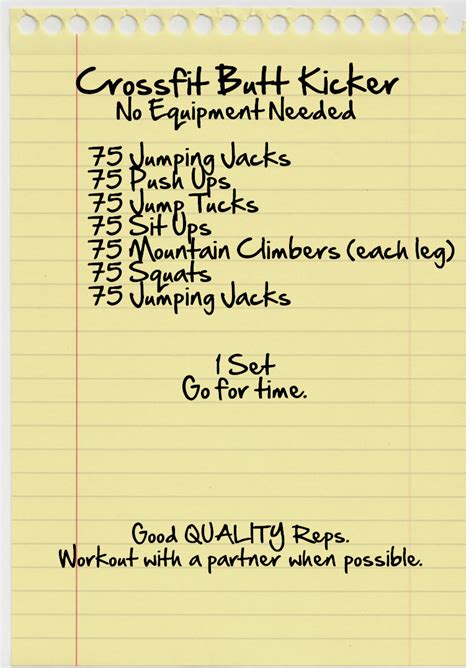 Crossfit Butt Kicker
No Equipment Needed
75 Jumping Jacks
75 Push Ups
75 Jump Tucks
75 Sit Ups
75 Mountain Climbers (each leg)
75 Squats
75 Jumping Jacks
1 Set
Go for time.
Good QUALITY Reps.
Workout with a partner when possible.